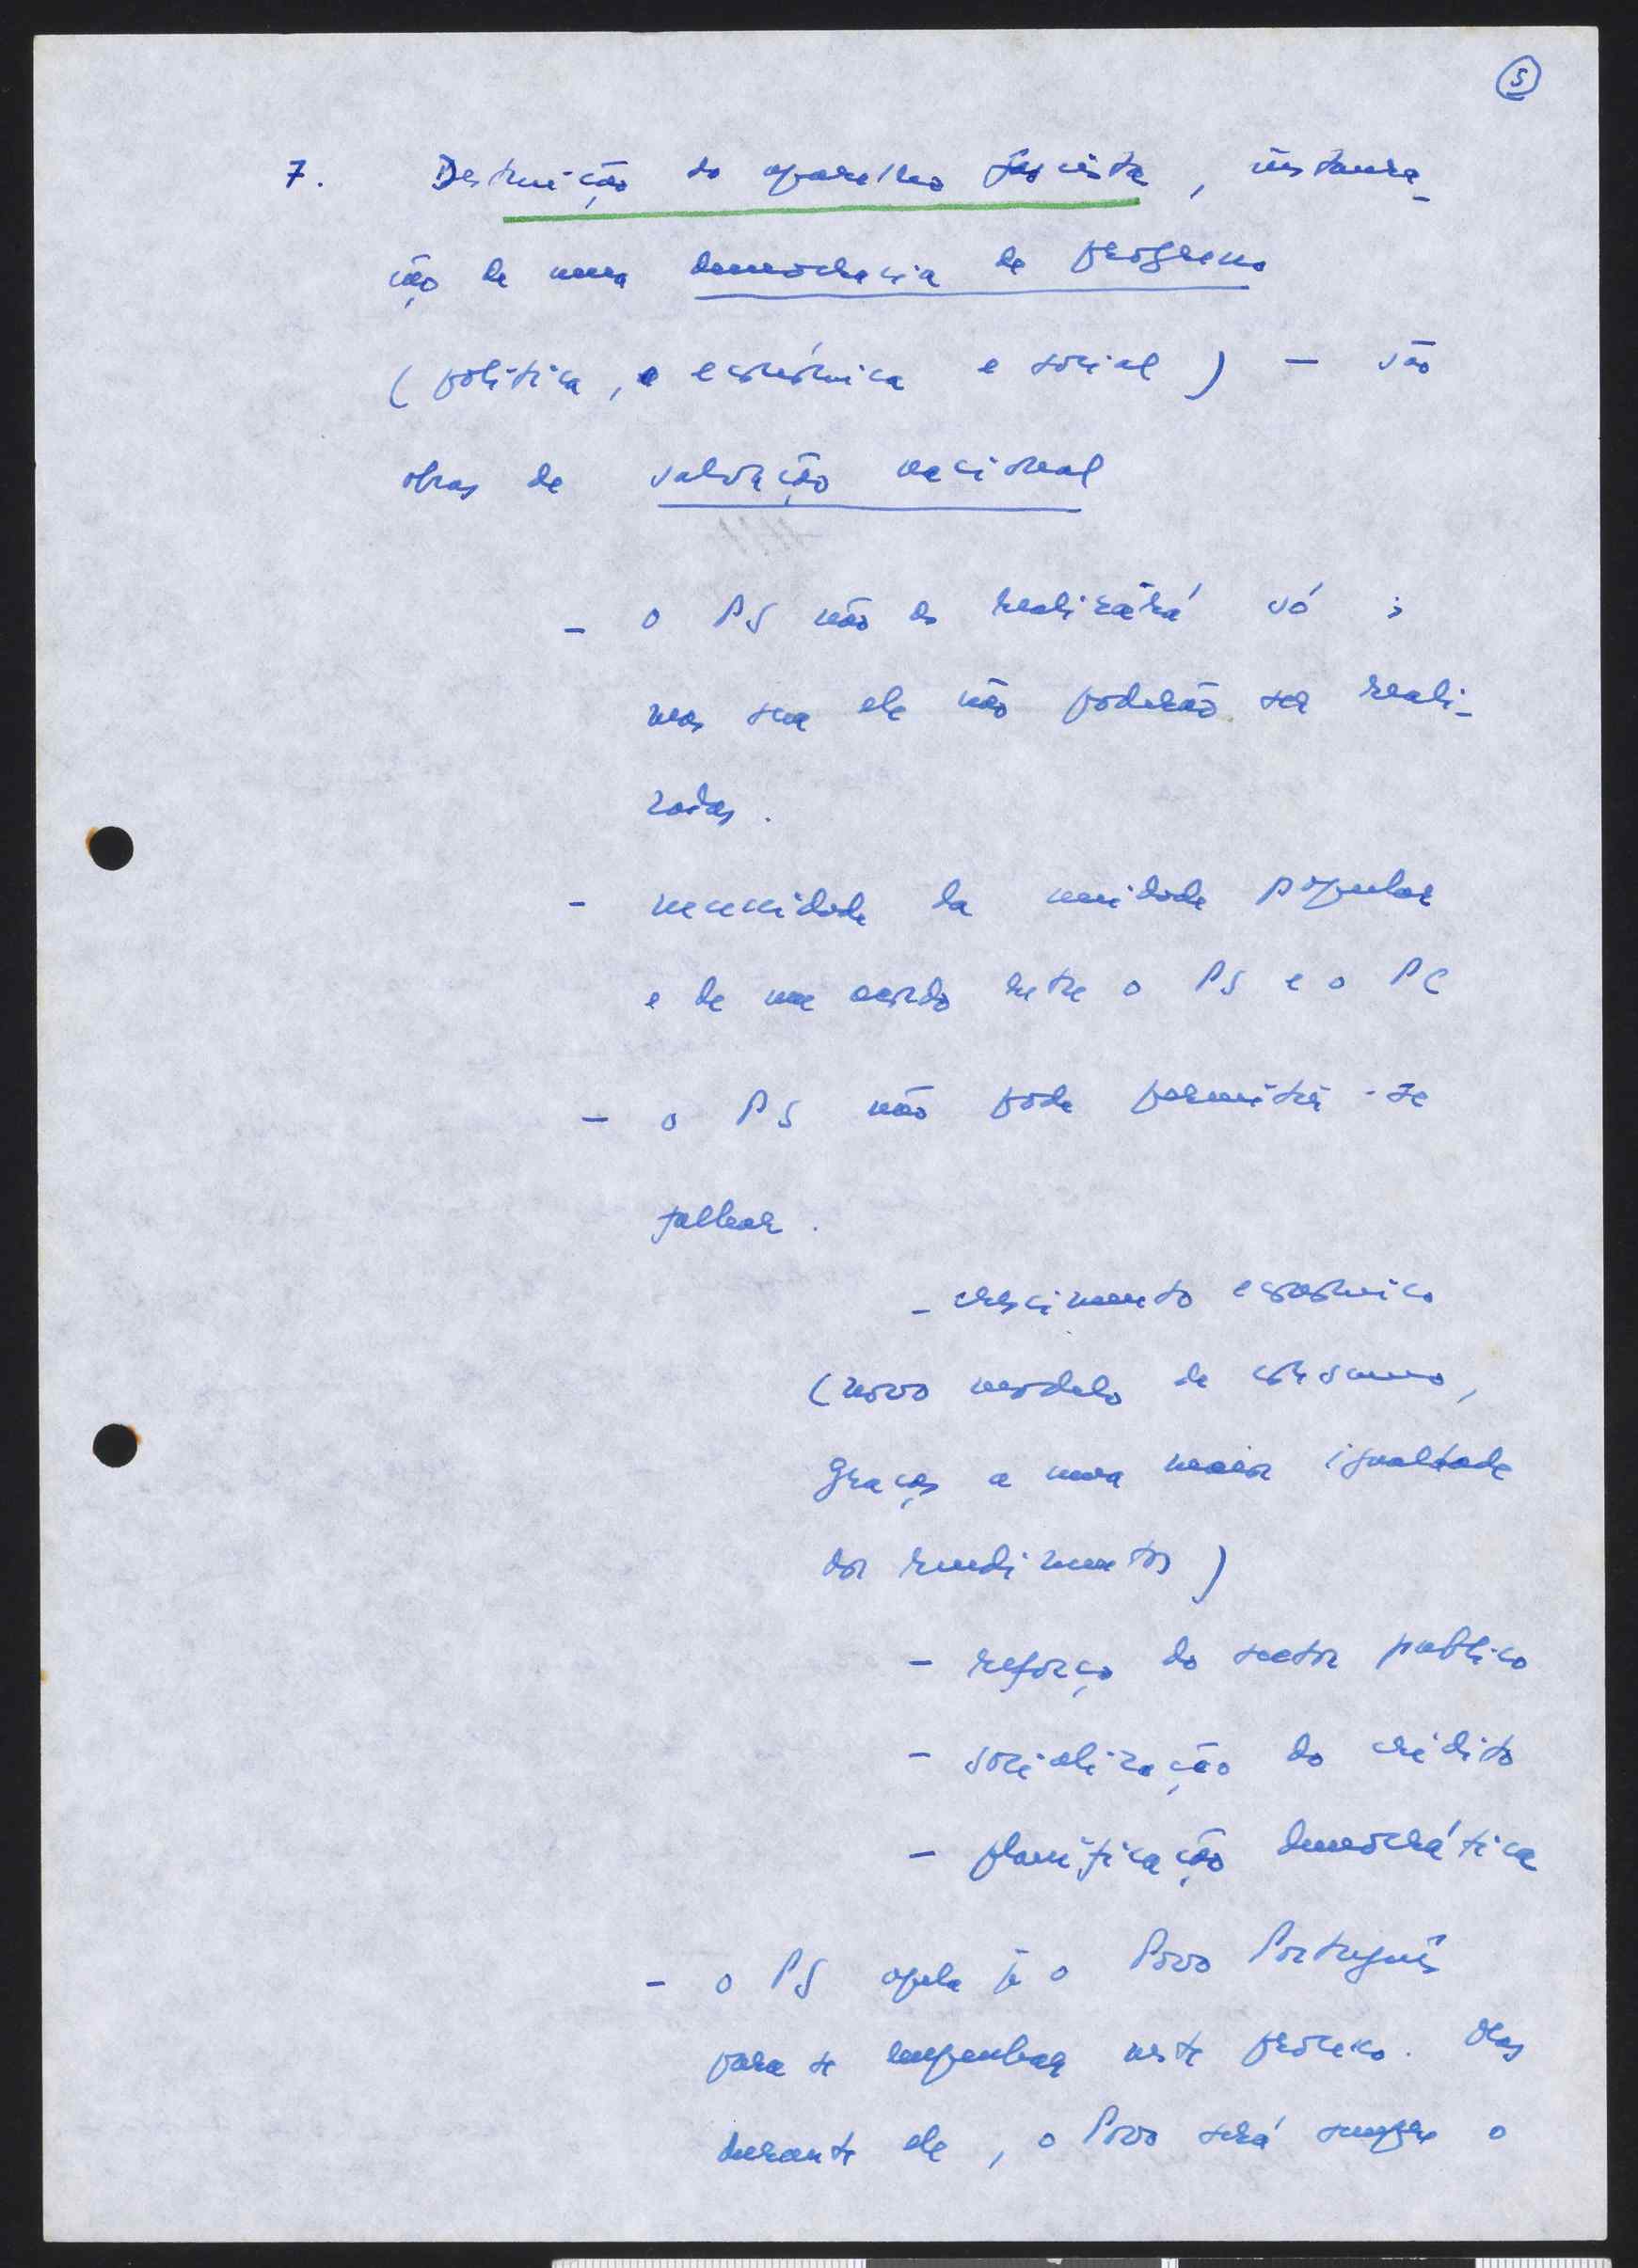 5
7. Destruição do aparelho fascista, instaura-
ção de uma democracia de progresso
(politica, e económica e social) — são
obras de salvação nacional
- o PS não as realizará só ;
mas sem ele não poderão ser reali-
zadas.
- necessidade da unidade popular
e de um acordo entre o PS e o PC
- o PS não pode permitir-se
falhar.
- crescimento económico
(novo modelo de consumo,
graças a uma maior igualdade
dos rendimentos)
- reforço do sector publico
- socialização do crédito
- planificação democrática
- o PS apela o Povo Português
para se empenhar neste processo. Mas
durante ele, o Povo será sempre o